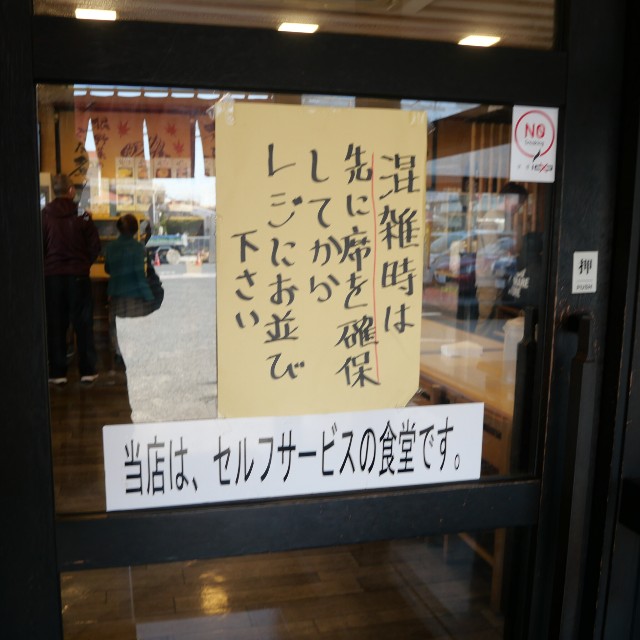 混雑時は
先に席を確保
してから
レジにお並び
下さい
当店は、セルフサービスの食堂です。
NO
Smoking
押
PUSH